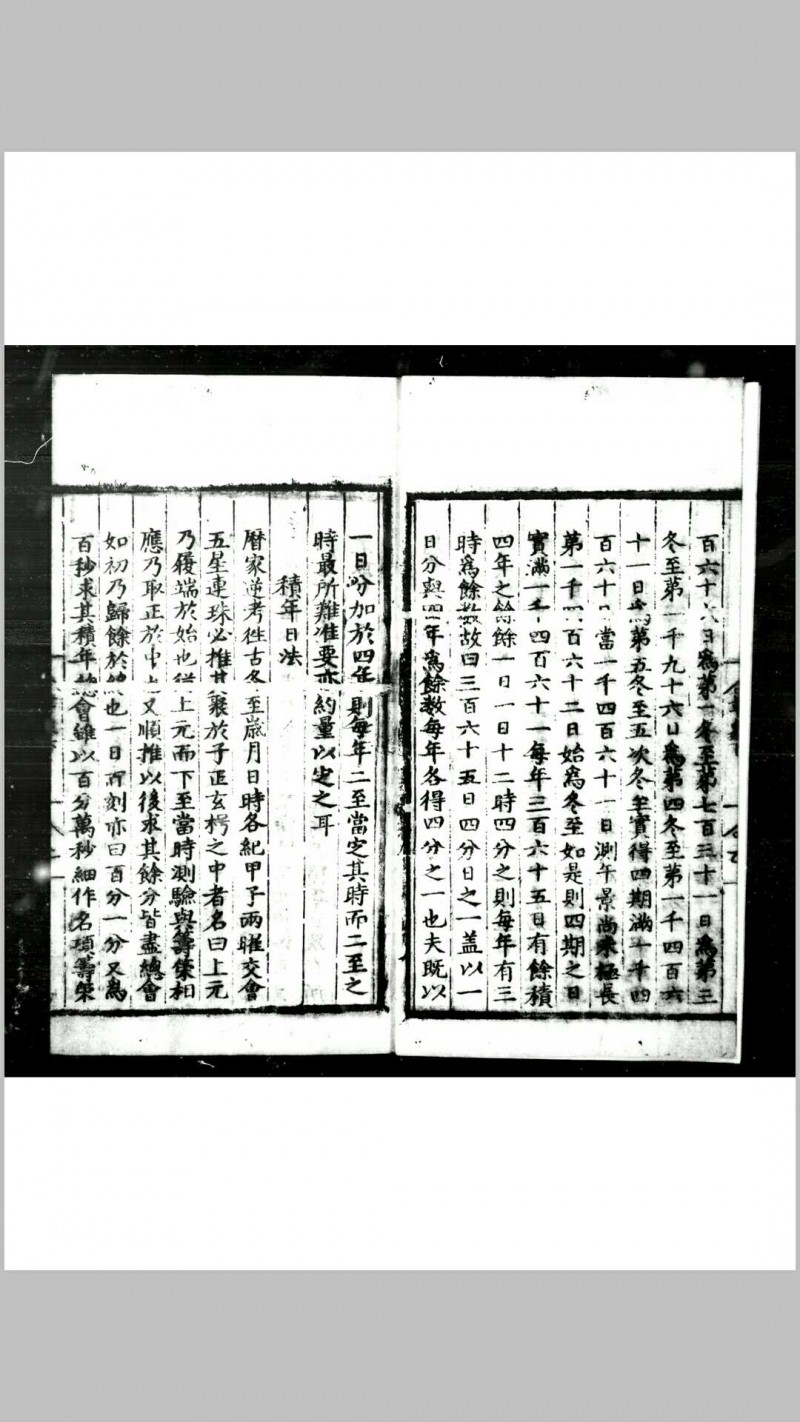 百六十六日爲第一冬至第七百三十一日爲第三
冬至第一千九十六日爲第四冬至第一千四百六
十一日爲第五冬至五次冬至實得四期滿一千四
百六十日當一千四百六十一日測午景尚未極長
第一千四百六十二日始爲冬至如是則四期之日
實滿一千四百六十一每年三百六十五日有餘積
四年之餘餘一日一日十二時四分之則每年有三
時爲餘數故曰三百六十五日四分日之一盖以一
日分與四年爲餘數每年各得四分之一也夫既以
一日分加於四年則每年二至當定其時而二至之
時最所難准要亦約量以定之耳
積年日法
曆家逆考徃古冬至歲月日時各紀甲子兩曜交會
五星連珠必推其聚於子正玄枵之中者名曰上元
乃履端於始也從上元而下至當時測驗與籌策相
應乃取正於中也又順推以後求其餘分皆盡總會
如初乃歸餘於終也一日百刻亦曰百分一分又爲
百秒求其積年總會雖以百分萬秒細作名項籌策